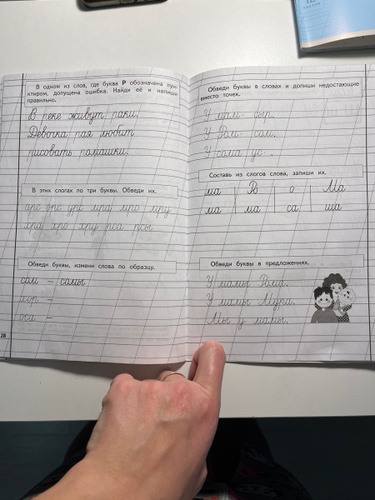 В одном из слов, где буква Р обозначена пунктиром, допущена ошибка. Найди её и напиши правильно.
В реке живут раки.
Девочка рая любит
рисовать ромашки.
В этих слогах по три буквы. Обведи их.
Обведи буквы, измени слова по образцу.
сом – сомы
хор –
оса –
28
Обведи буквы в словах и допиши недостающие вместо точек.
У сыр.
У Ром сом.
У сома ус .
Составь из слогов слова, запиши их.
ма Ро о Ма
ма ма са ша
Обведи буквы в предложениях.
У мамы Рома.
У мамы Мура.
Мы у мамы.